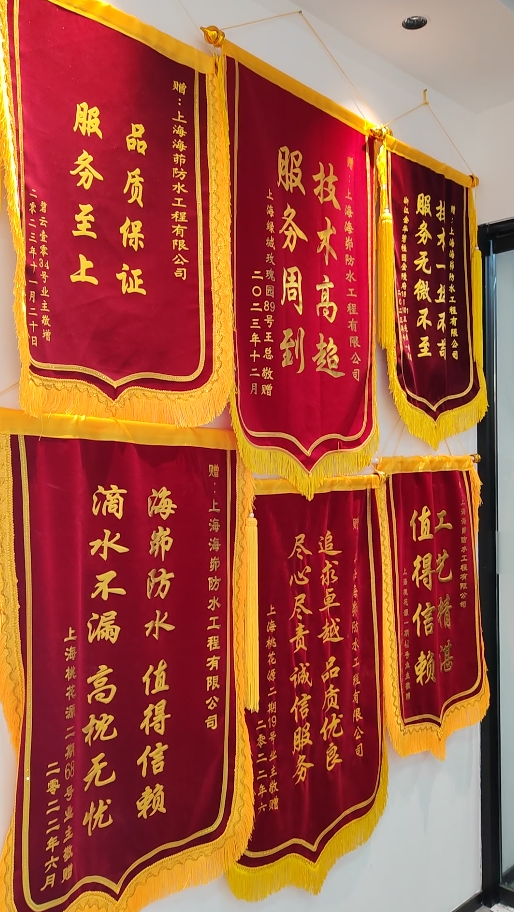 赠：上海海茆防水工程有限公司
品质保证
服务至上
碧云壹零34号业主敬增
二零二三年十一月二十日
赠：上海海茆防水工程有限公司
技术高超
服务周到
上海绿城玫瑰园89号王总敬赠
二〇二三年十二月
赠：上海海茆防水工程有限公司
技术一丝不苟
服务无微不至
赠：上海海茆防水工程有限公司
海茆防水 值得信赖
滴水不漏 高枕无忧
上海桃花源二期68号业主敬赠
二零二二年六月
赠：上海海茆防水工程有限公司
追求卓越 品质优良
尽心尽责 诚信服务
上海桃花源二期19号业主敬赠
二零二二年六
上海海茆防水工程有限公司
工艺精湛
值得信赖